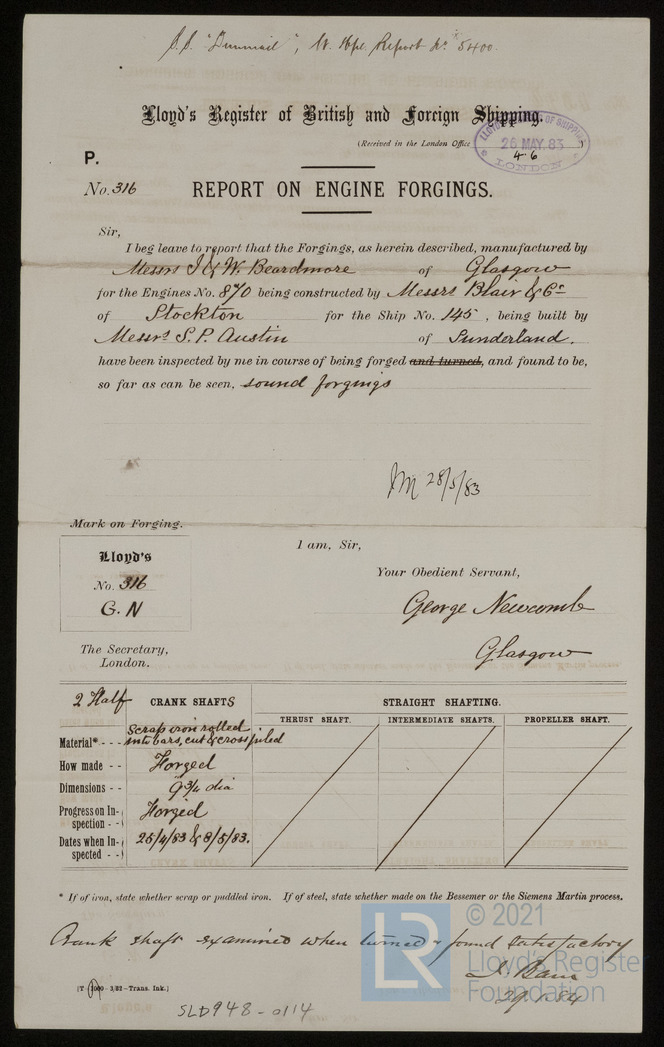 S.S. "Dunmail", W. Hpl. Report No. 5400.
Lloyd's Register of British and Foreign Shipping.
(Received in the London Office )
LLOYD'S REGISTER OF SHIPPING
26 MAY. 83
LONDON
46
P.
No. 316
REPORT ON ENGINE FORGINGS.
Sir,
I beg leave to report that the Forgings, as herein described, manufactured by
Messrs I & W. Beardmore of Glasgow
for the Engines No. 870 being constructed by Messrs Blair & Co
of Stockton for the Ship No. 145, being built by
Messrs S. P. Austin of Sunderland.
have been inspected by me in course of being forged and turned, and found to be,
so far as can be seen, sound forgings
28/5/83
Mark on Forging.
Lloyd's
No. 316
G. N
I am, Sir,
Your Obedient Servant,
George Newcomb
Glasgow
The Secretary,
London.
2 Half CRANK SHAFTS
STRAIGHT SHAFTING.
THRUST SHAFT. INTERMEDIATE SHAFTS. PROPELLER SHAFT.
Material* - - - Scrap iron rolled
into bars, cut & cross piled
How made - - Forged
Dimensions - - 9 3/4 dia
Progress on In-
spection - - Forged
Dates when In-
spected - - 25/4/83 & 8/5/83.
* If of iron, state whether scrap or puddled iron. If of steel, state whether made on the Bessemer or the Siemens Martin process.
Crank shaft examined when turned & found satisfactory
29.1.84
[T 1000-3/83-Trans. Ink.]
SLD948-0114
LR
© 2021
Lloyd's Register
Foundation